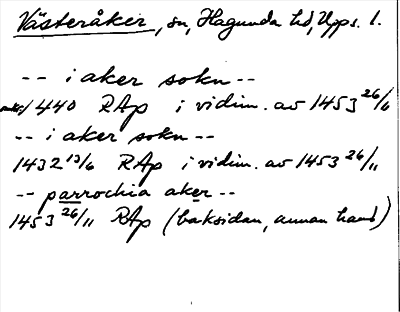 Västeråker, sn, Hagunda hd, Upps. l.
-- i aker sokn --
1440 RAp i vidim. av 1453 26/11
-- i aker sokn --
1432 13/6 RAp i vidim. av 1453 26/11
-- parrochia aker --
1453 26/11 RAp (baksidan, annan hand)